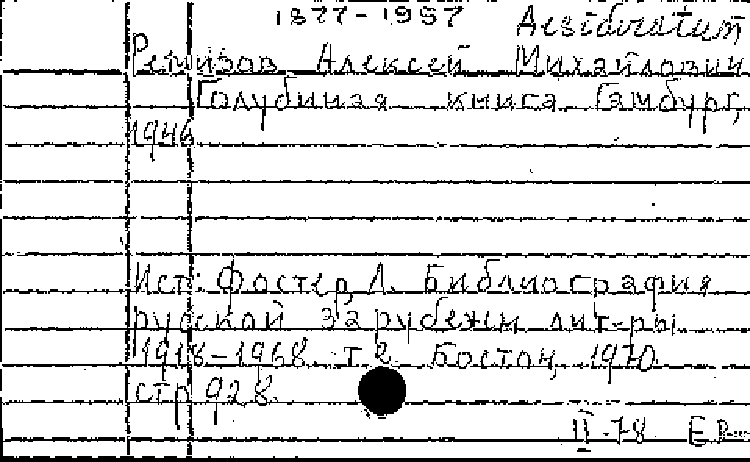 1877-1957 Desideratum
Ремизов Алексей Михайлович
Голубиная книга Гамбург,
1946
Ист: Фостер Л. Библиография
русской зарубежн лит-ры
1918-1968 т 2. Бостон, 1970
стр 928
II-78